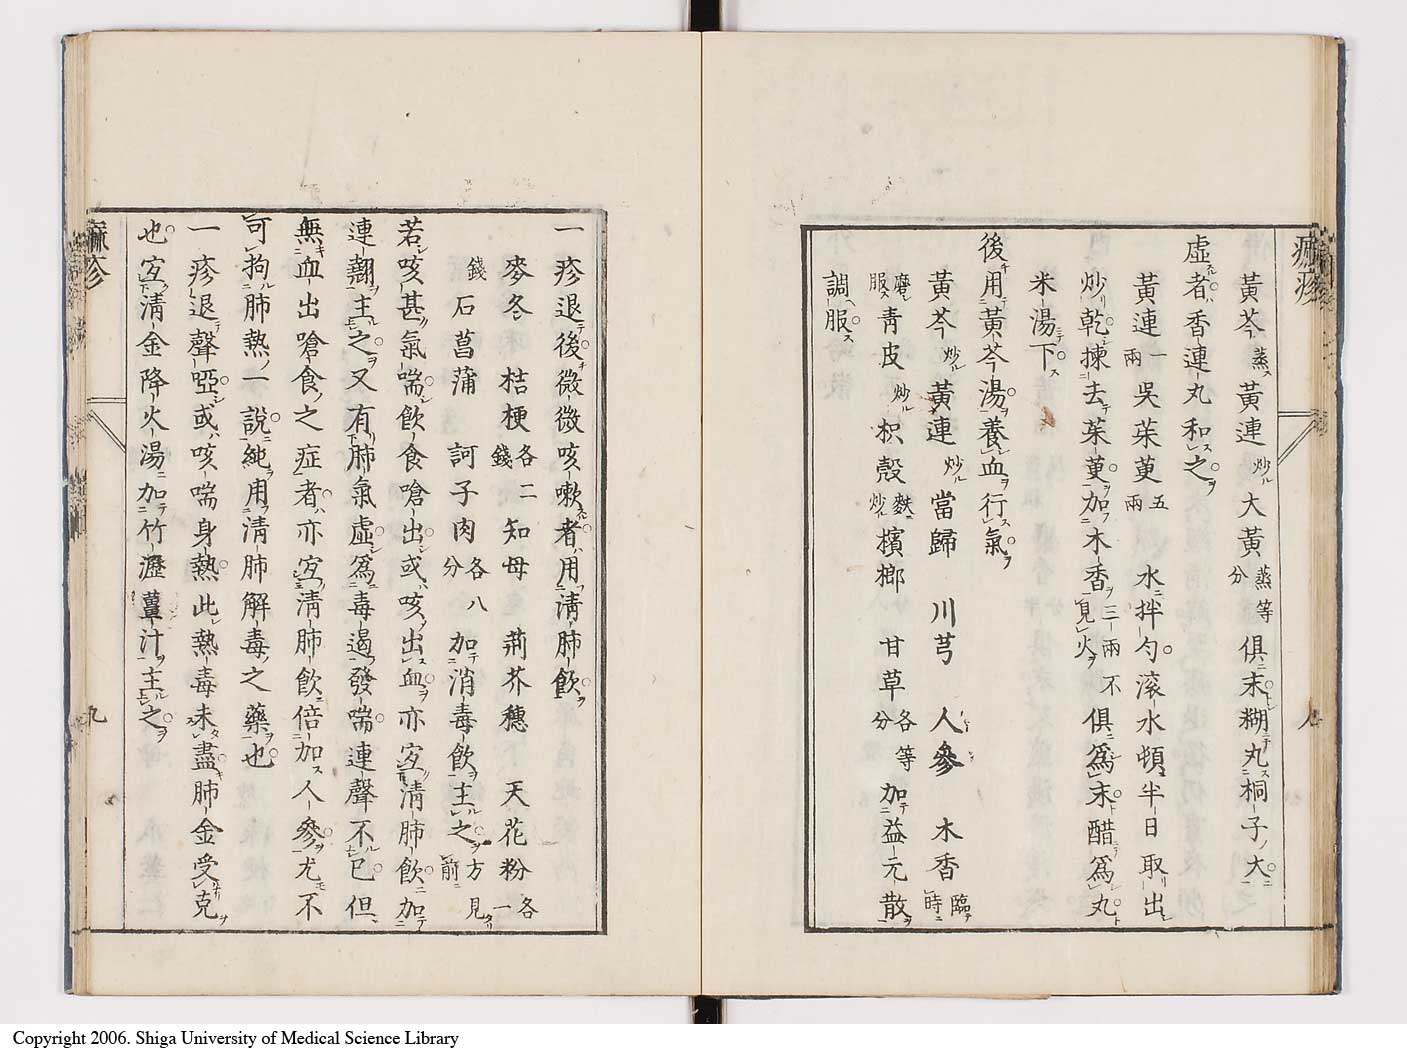 痲疹
黃芩蒸ス黃連炒ル大黃蒸等分俱ニ末糊丸桐子ノ大
虛者ハ香連丸和之
黃連一兩吳茱萸五兩水拌勻滾水頓半日取出
炒乾揀去茱萸加木香三兩不見火俱爲末醋爲丸
米湯下
後用黃芩湯養血行氣
黃芩炒黃連炒當歸川芎人參木香臨時
磨服靑皮炒枳殼麩炒檳榔甘草各等分加益元散
調服
八
一疹退後微微咳嗽者用淸肺飮
麥冬桔梗各二錢知母荊芥穗天花粉各一
錢石菖蒲訶子肉各八分加消毒飮主之方見前
若咳甚氣喘飮食嗆出或咳出血亦宜淸肺飮加
連翹主之又有肺氣虛爲毒遏發喘連聲不已但
無血出嗆食之症者亦宜淸肺飮倍加人參尤不
可拘肺熱一說純用淸肺解毒之藥也
一疹退聲啞或咳喘身熱此熱毒未盡肺金受克
也宜淸金降火湯加竹瀝薑汁主之
痲疹
九
Copyright 2006. Shiga University of Medical Science Library